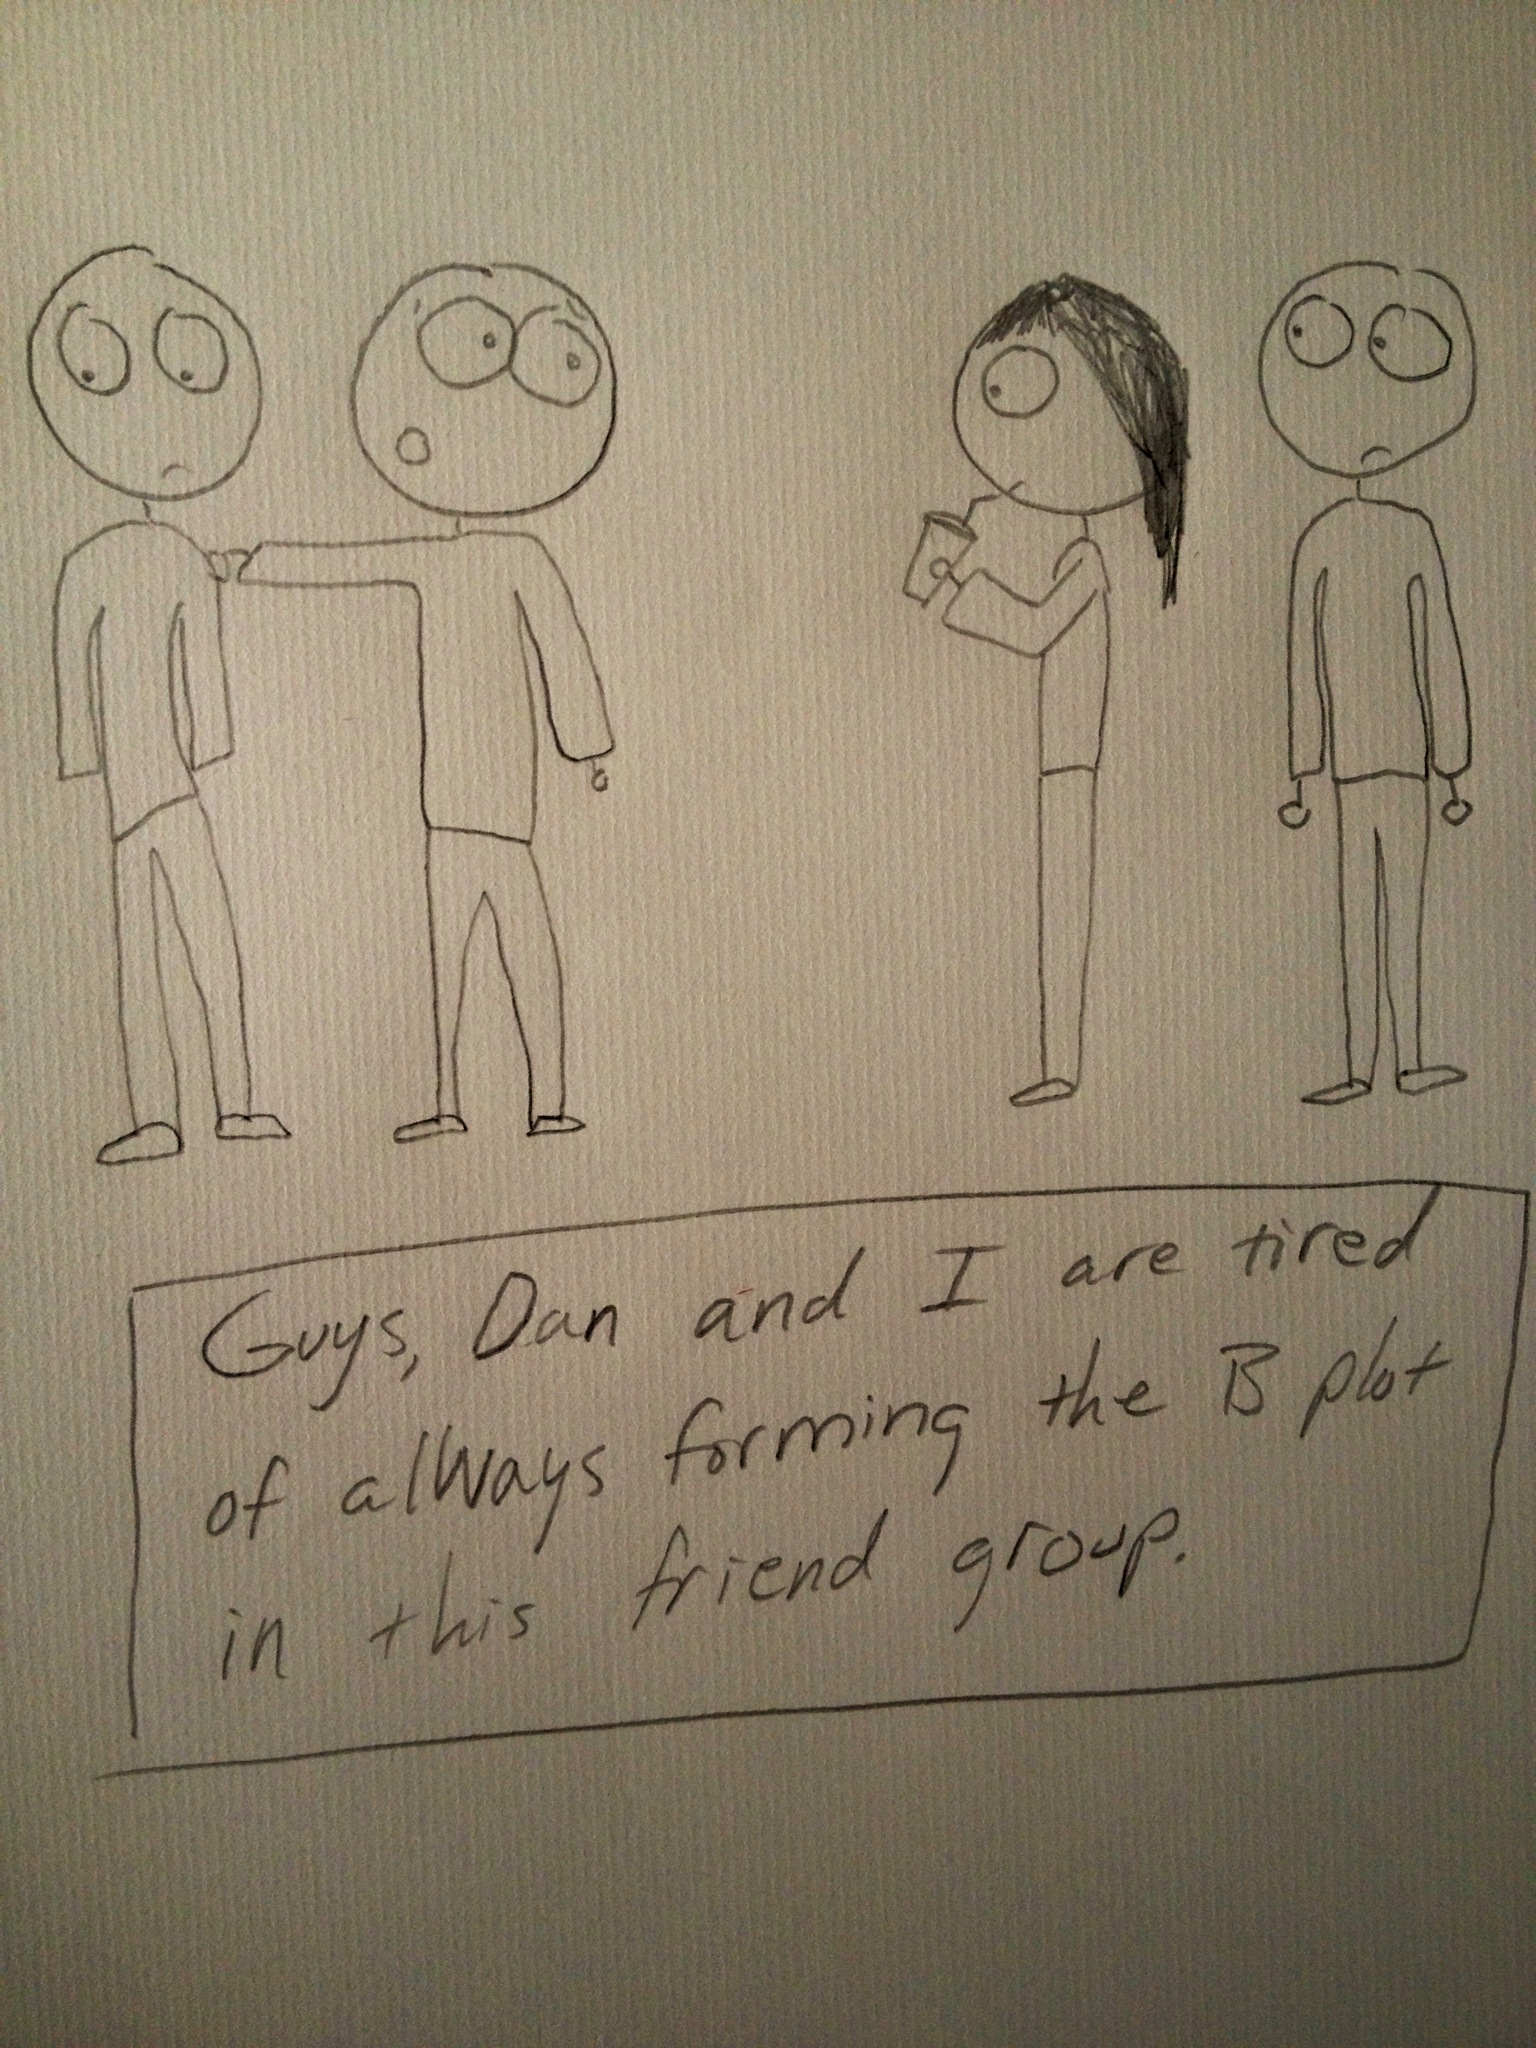 Guys, Dan and I are tired
of always forming the B plot
in this friend group.